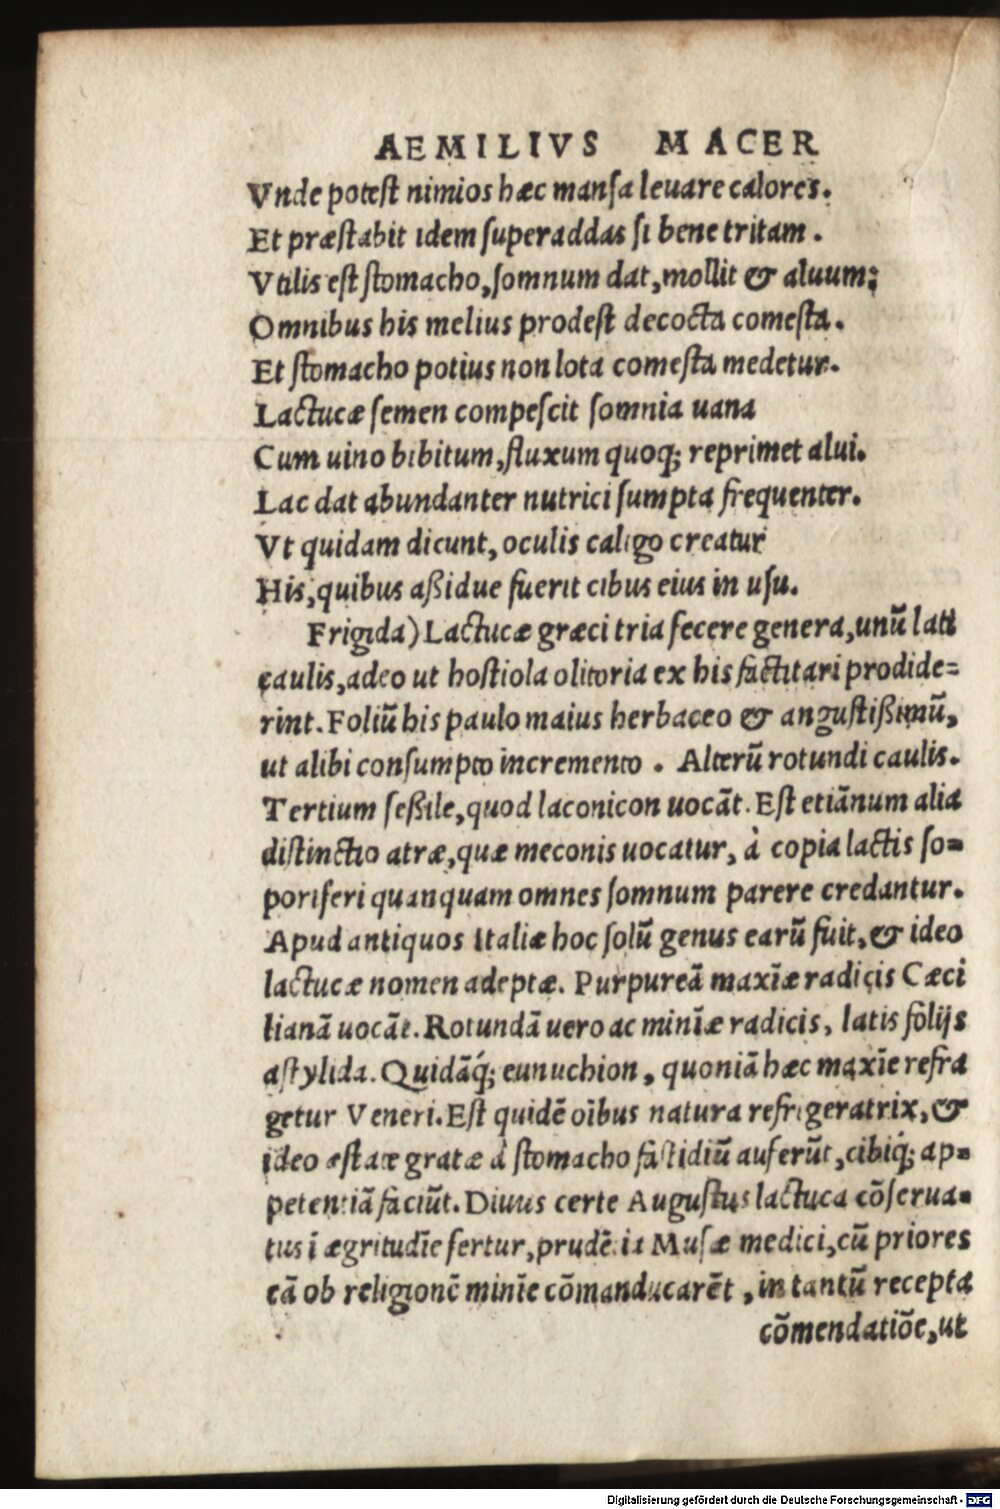 AEMILIVS MACER
Vnde potest nimios hæc mansa leuare calores.
Et præstabit idem superaddas si bene tritam.
Vtilis est stomacho, somnum dat, mollit & aluum;
Omnibus his melius prodest decocta comesta.
Et stomacho potius non lota comesta medetur.
Lactucæ semen compescit somnia uana
Cum uino bibitum, fluxum quoq; reprimet alui.
Lac dat abundanter nutrici sumpta frequenter.
Vt quidam dicunt, oculis caligo creatur
His, quibus aßidue fuerit cibus eius in usu.
Frigida) Lactucæ græci tria fecere genera, unū lati
caulis, adeo ut hostiola olitoria ex his factitari prodide=
rint. Foliū his paulo maius herbaceo & angustißimū,
ut alibi consumpto incremento. Alterū rotundi caulis.
Tertium seßile, quod laconicon uocāt. Est etiānum alia
distinctio atræ, quæ meconis uocatur, à copia lactis so=
poriferi quanquam omnes somnum parere credantur.
Apud antiquos Italiæ hoc solū genus earū fuit, & ideo
lactucæ nomen adeptæ. Purpureā maxīæ radicis Cæci
lianā uocāt. Rotundā uero ac minīæ radicis, latis folijs
astylida. Quidāq́; eunuchion, quoniā hæc maxīe refra
getur Veneri. Est quidē oībus natura refrigeratrix, &
ideo æstate gratæ à stomacho fastidiū auferūt, cibiq́; ap=
petentiā faciūt. Diuus certe Augustus lactuca cōserua=
tus ī ægritudīe fertur, prudētia Musæ medici, cū priores
eā ob religionē minīe cōmanducarēt, in tantū recepta
cōmendatiōe, ut
Digitalisierung gefördert durch die Deutsche Forschungsgemeinschaft - DFG